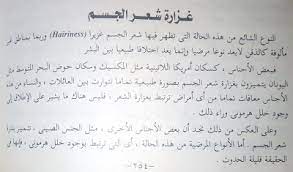 غزارة شعر الجسم
النوع الشائع من هذه الحالة التي تظهر فيها شعر الجسم غزيرا (Hairiness) وربما بمناطق غير
مألوفة كالذقن لايعد نوعا مرضيا وإنما يعد اختلافا طبيعيا بين البشر
فبعض الأجناس، كسكان أمريكا اللاتينية مثل المكسيك وسكان حوض البحر المتوسط مثل
اليونان يتميزون بغزارة شعر الجسم بصورة طبيعية تماما تتوارث بين العائلات، والنساء من هذه
الأجناس معافات تماما من أى أمراض ترتبط بغزارة الشعر، فليس هناك ما يشير على الإطلاق إلى
وجود خلل هرمونى وراء ذلك.
وعلى العكس من ذلك نجد أن بعض الأجناس الأخرى، مثل الجنس الصينى، تتميز بندرة
شعر الجسم. أما الأنواع المرضية من هذه الحالة، أى التى ترتبط بوجود خلل هرمونى، فهى فى
الحقيقة قليلة الحدوث.
- ٢٥٤ -